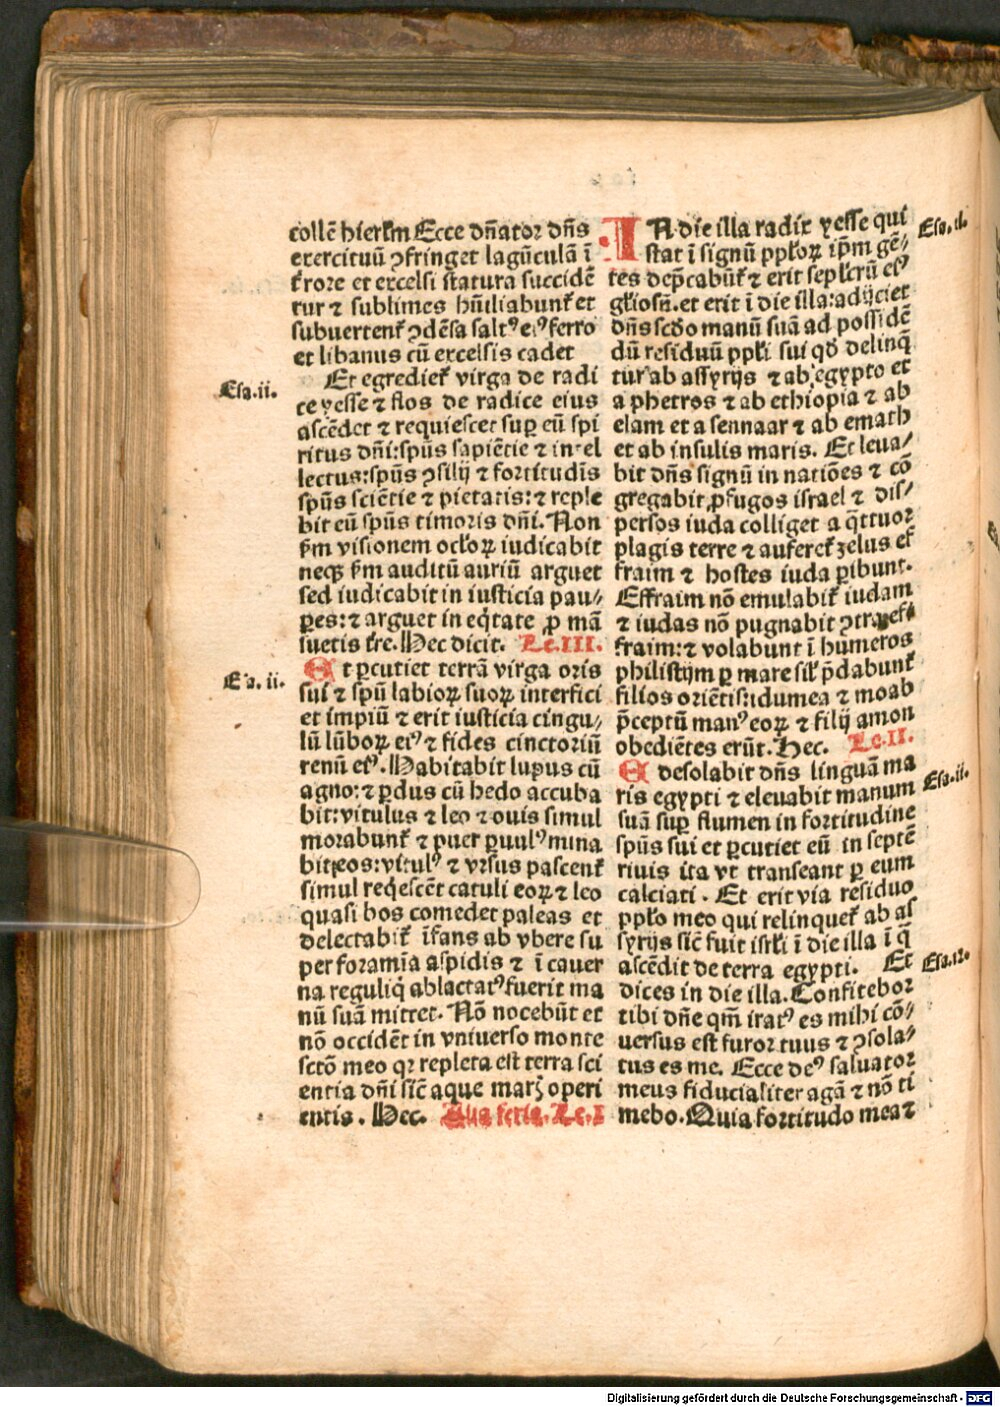 collē hierłm Ecce dn̄ator dn̄s
exercituū ꝯfringet lagūculā ī
t̄rore et excelsi statura succidē
tur ⁊ sublimes hūiliabunt̄ et
subuertent̄ ꝯdēsa saltꝰ eiꝰ ferro
et libanus cū excelsis cadet
Esa.ii.
Et egrediet̄ virga de radi
ce yesse ⁊ flos de radice eius
ascēdet ⁊ requiescet suꝑ eū spi
ritus dn̄i:spūs sapiētie ⁊ intel
lectus:spūs ꝯsilij ⁊ fortitudīs
spūs sciētie ⁊ pietatis:⁊ reple
bit eū spūs timoris dn̄i. Non
ẜm visionem ocłoꝝ iudicabit
neqꝫ ẜm auditū auriū arguet
sed iudicabit in iusticia pau⸗
ꝑes:⁊ arguet in eq̇tate ꝓ mā
suetis t̄re. Hec dicit. Lc.III.
Esa. ii.
Et ꝑcutiet terrā virga oris
sui ⁊ spū labioꝝ suoꝝ interfici
et impiū ⁊ erit iusticia cingu⸗
lū lūboꝝ eiꝰ ⁊ fides cinctoriū
renū eiꝰ. Habitabit lupus cū
agno:⁊ ꝑdus cū hedo accuba
bit:vitulus ⁊ leo ⁊ ouis simul
morabunt̄ ⁊ puer ꝑuulꝰ mina
bit eos:vitulꝰ ⁊ vrsus pascent̄
simul reqescēt catuli eoꝝ ⁊ leo
quasi bos comedet paleas et
delectabit̄ īfans ab vbere su
per foramīa aspidis ⁊ ī cauer
na reguli q̇ ablactatꝰ fuerit ma
nū suā mittet. Nō nocebūt et
nō occidēt in vniuerso monte
sctō meo qꝛ repleta est terra sci
entia dn̄i sic̄ aque marꝭ operi
entis. Hec. Sꝯa feria. Lc.I
Esa.ii.
In die illa radix yesse qui
stat ī signū ppłoꝝ ip̄m gē⸗
tes dep̄cabūt̄ ⁊ erit seplcrū eiꝰ
głiosū.et erit ī die illa:adijciet
dn̄s scd̄o manū suā ad possidē
dū residuū ppłi sui qđ delinq̄
tur ab assyrijs ⁊ ab egypto et
a phetros ⁊ ab ethiopia ⁊ ab
elam et a sennaar ⁊ ab emath
et ab insulis maris. Et leua⸗
bit dn̄s signū in natiōes ⁊ cō
gregabit ꝓfugos israel ⁊ dis⸗
persos iuda colliget a q̄ttuor
plagis terre ⁊ auferet̄ zelus ef
fraim ⁊ hostes iuda ꝑibunt.
Effraim nō emulabit̄ iudam
⁊ iudas nō pugnabit ꝯtra ef⸗
fraim:⁊ volabunt ī humeros
philistijm ꝑ mare sił p̄dabunt̄
filios oriētis:idumea ⁊ moab
p̄ceptū manꝰ eoꝝ ⁊ filij amon
obediētes erūt. Hec. Lc.II.
Esa.ii.
Et desolabit dn̄s linguā ma
ris egypti ⁊ eleuabit manum
suā suꝑ flumen in fortitudine
spūs sui et ꝑcutiet eū in septē
riuis ita vt transeant ꝑ eum
calciati. Et erit via residuo
ppło meo qui relinquet̄ ab as
syrijs sic̄ fuit isrłi ī die illa ī q̄
ascēdit de terra egypti. Et
Esa.12.
dices in die illa. Confitebor
tibi dn̄e qm̄ iratꝰ es mihi cō⸗
uersus est furor tuus ⁊ ꝯsola⸗
tus es me. Ecce deꝰ saluator
meus fiducialiter agā ⁊ nō ti
mebo. Quia fortitudo mea ⁊
Digitalisierung gefördert durch die Deutsche Forschungsgemeinschaft - DFG